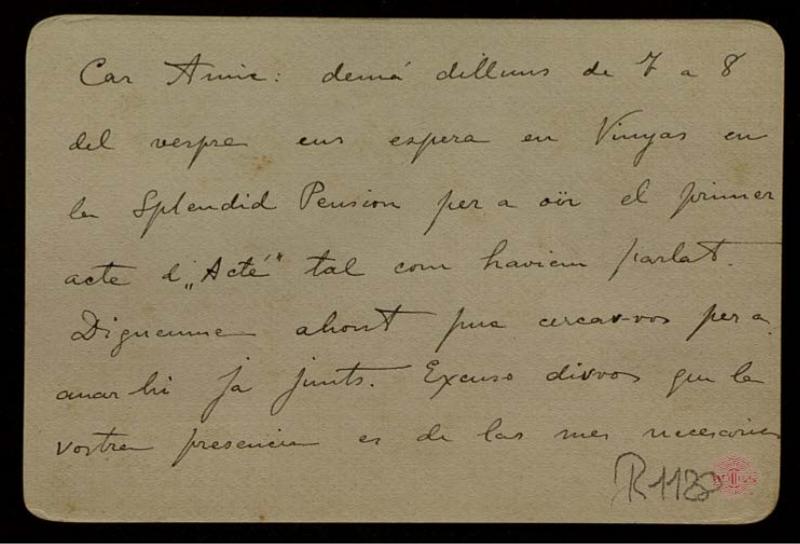 Car Amic: demá dilluns de 7 a 8
del vespre ens espera en Vinyas en
la Splendid Pension per a oïr el primer
acte d'„Acté" tal com haviem parlat.
Digueume ahont puc cercar-vos per a
anar hi ja junts. Excuso dirvos que la
vostra presencia es de las mes necesaries
R-1182